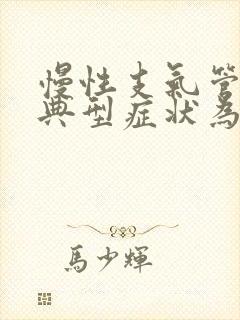 慢性支氣管
典型症狀為
馬少輝